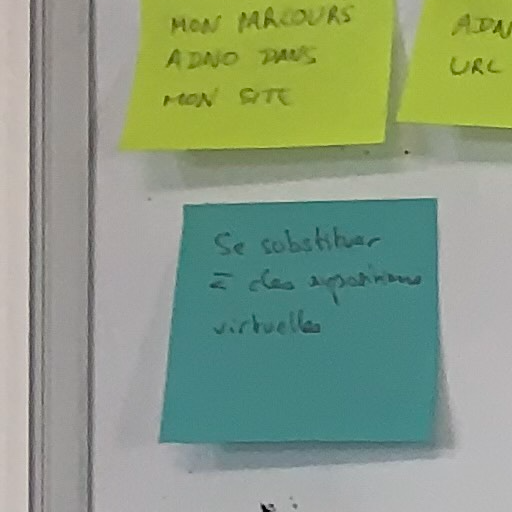 MON PARCOURS
ADNO DANS
MON SITE
ADN
URL
Se substituer
à des expositions
virtuelles